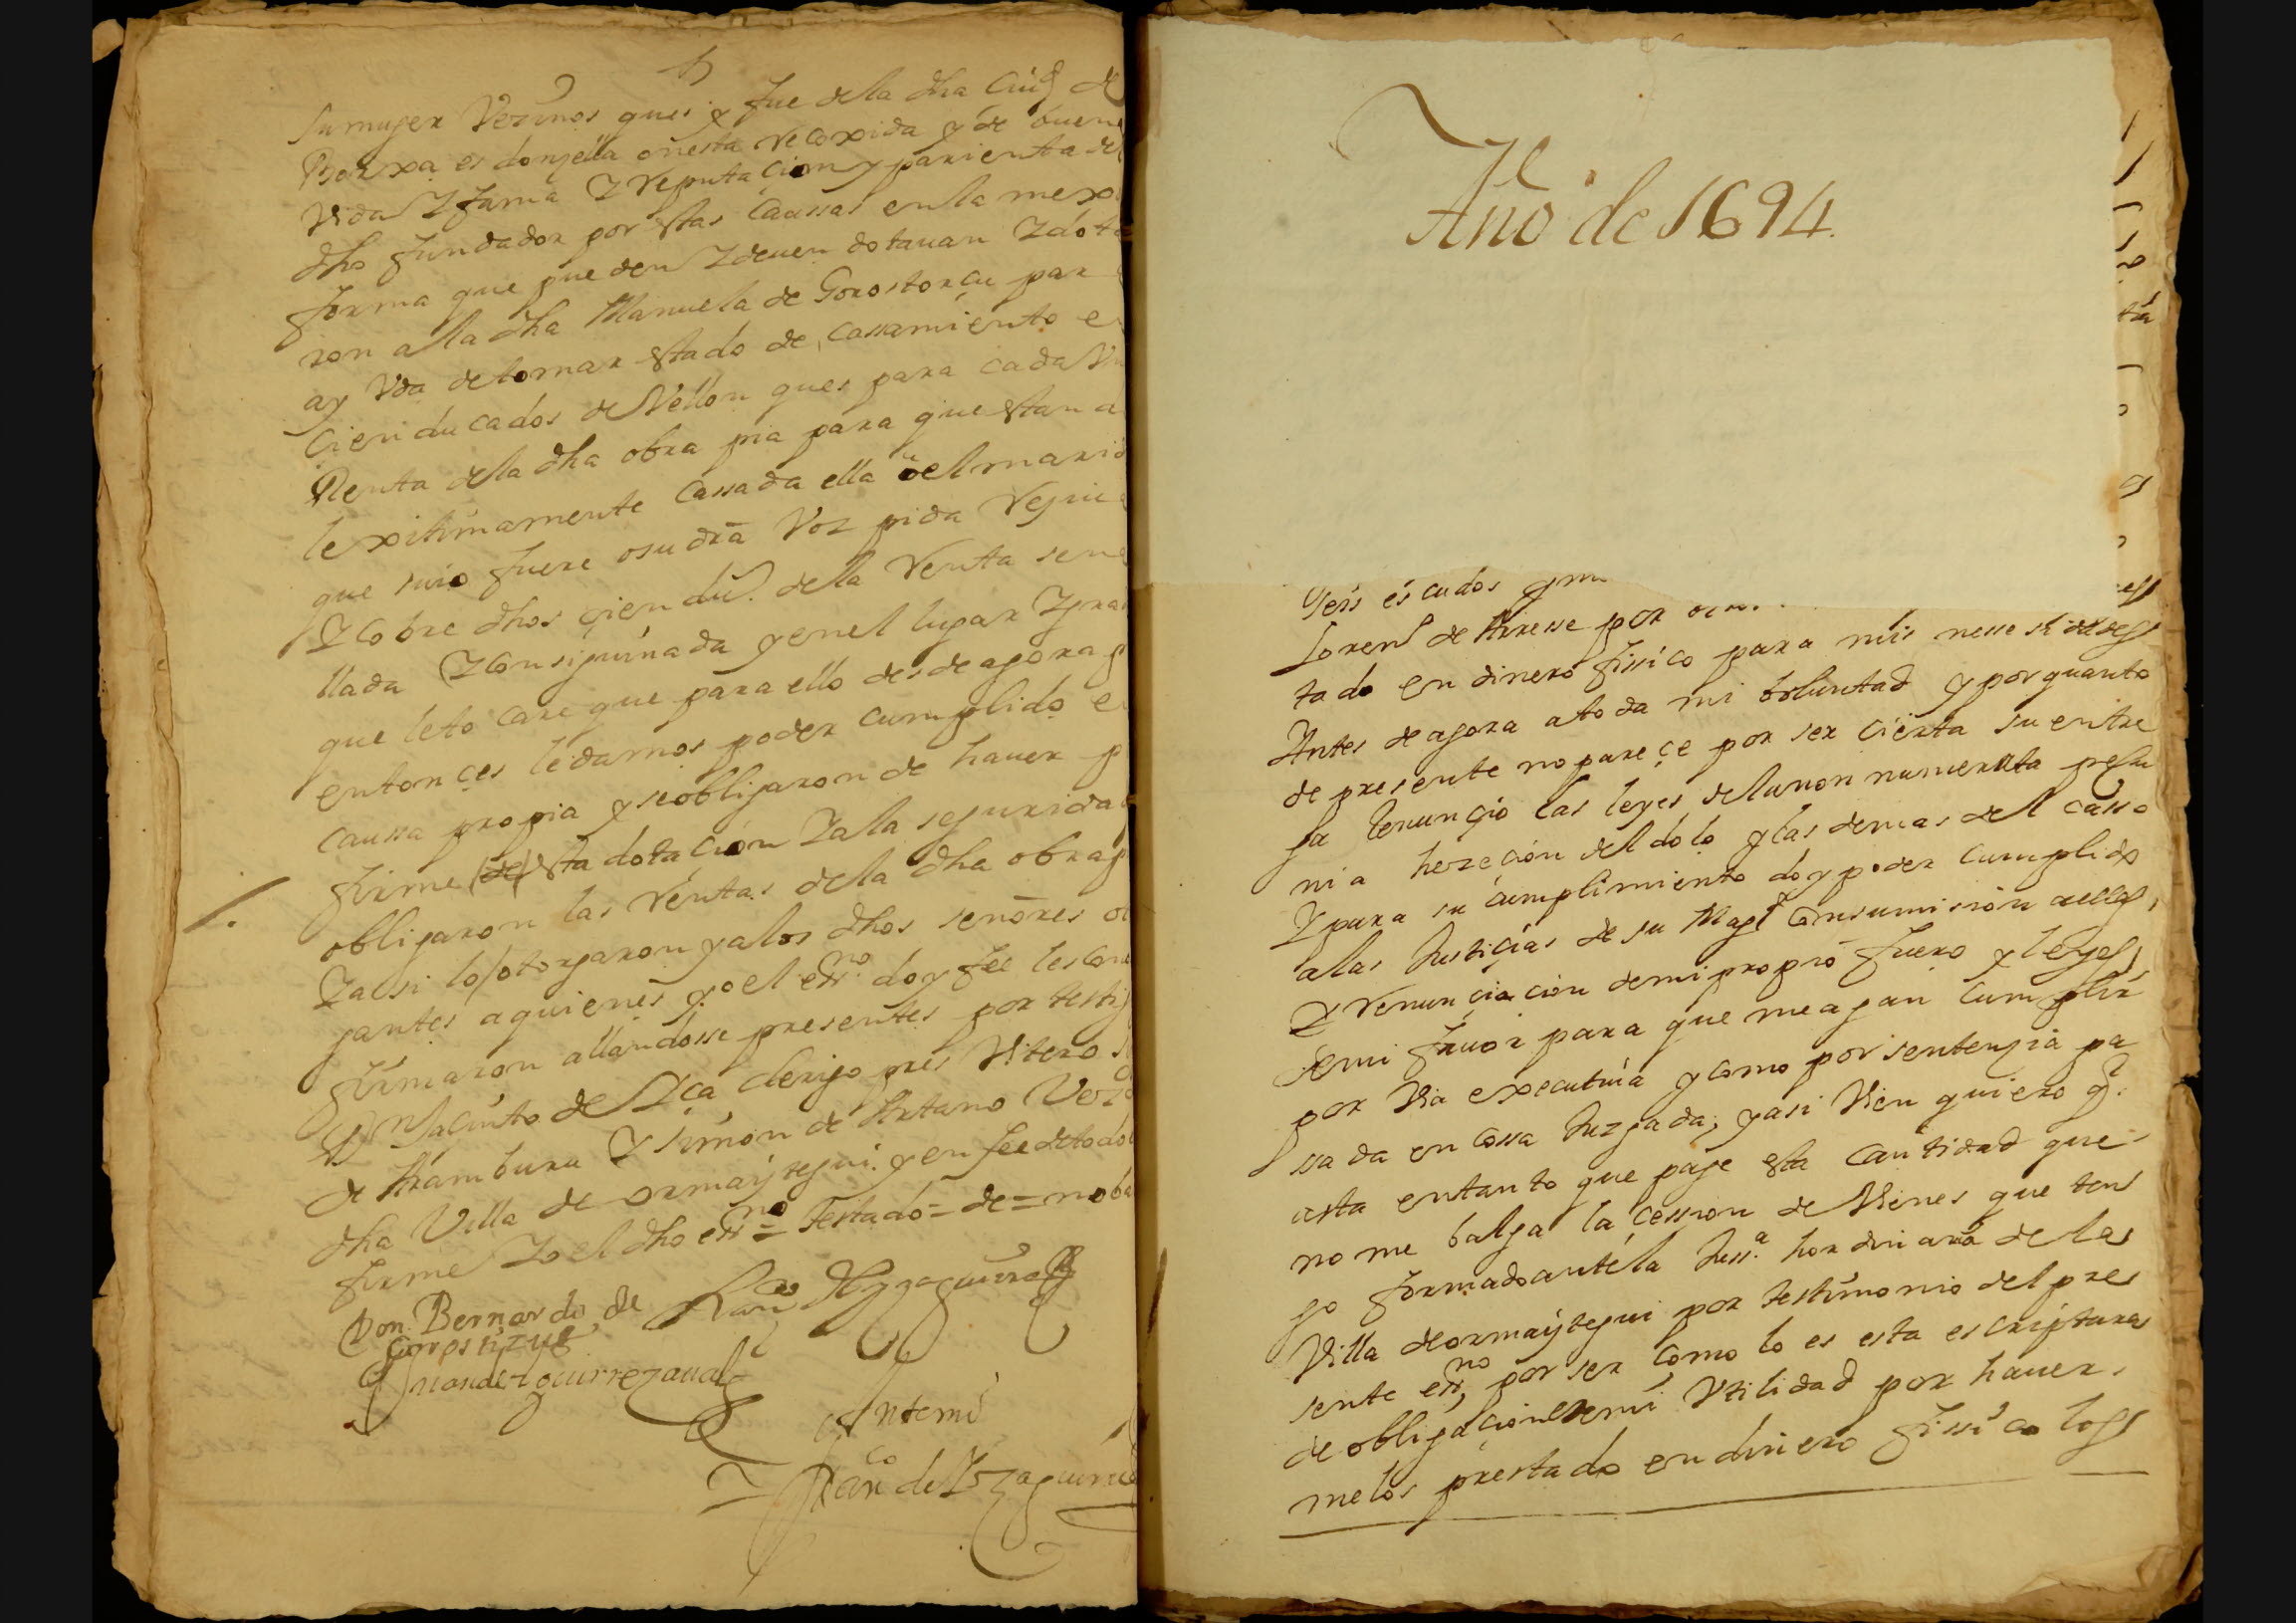 su muger Vezinos ques y fue de la dha Ciud de
Borxa es donzella onesta recoxida y de buena
Vida Y fama Y reputaçion y parienta del
dho fundador por stas Caussas en la mexor
forma que pueden Y deuen dotauan Y dota
ron a la dha Manuela de Gorostorcu par
ay Vda de tomar stado de cassamiento en
Cien ducados de Vellon ques para cada Vn
Renta de la dha obra pia para que stan a
lexitimamente Cassada ella o el marid
que suio fuere o su dra Voz pida reçiu
Y Cobre dhos çien du.s de la renta sena
llada Y Consiguinada y en el lugar Y pra
que le to care que para ello desde agora p
entonçes le damos poder cumplido en
caussa propia y se obligaron de hauer p
firme (de) sta dotaçion Y a la seguridad
obligaron las rentas de la dha obra p
Y assi lo otorgaron y a los dhos señores o
gantes a quienes yo el essno doy fee les Con
firmaron allandosse presentes por testig
Dn Jacinto de Yça clerigo pres Vitero
de Aramburu Y simon de Artano Vezo
dha Villa de ormaiztegui y en fee de todo
firme Yo el dho essno = Testado = de = no ba
Don Bernardo de
Gorostizu
Fran.co de Yzaguirre
Juan de Yçurrezaual
Ante mi
Fran.co de Yzaguirre
Año de 1694.
Seis escudos y
Loren.o de Aresse por
tado en dinero fissico para mis nessesidades
Antes de agora a toda mi boluntad y por quanto
de presente no pareçe por ser cierta su entre
ga renunçio las leyes de la non numerata pecu
nia hezeción del dolo y las demas del casso
Y para su cumplimiento doy poder cumplido
a las Justiçias de su Magd Con sumision a ellas,
Y renunçiacion de mi propio fuero y leyes
de mi fauor para que me agan cumplir
por Via executiua y como por sentençia pa
ssada en cossa Juzgada; y asi Vien quiero q.
asta entanto que page esta cantidad que
no me balga la çession de Vienes que ten
go formado ante la Juss.a hordinaria de la
Villa de ormaiztegui por testimonio del pre
sente essno, por ser como lo es esta escriptura
de obligaçion de mi Vtilidad por hauer
melos prestado en dinero fissico los